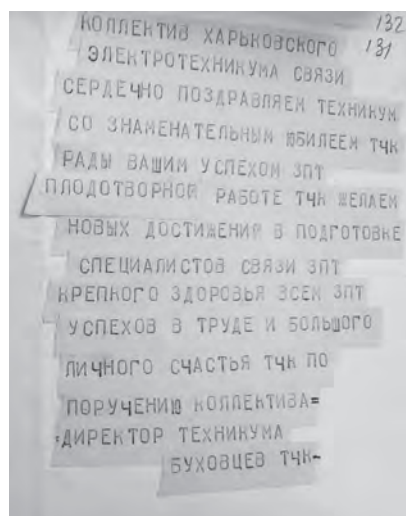 132
131
КОЛЛЕКТИВ ХАРЬКОВСКОГО
ЭЛЕКТРОТЕХНИКУМА СВЯЗИ
СЕРДЕЧНО ПОЗДРАВЛЯЕМ ТЕХНИКУМ
СО ЗНАМЕНАТЕЛЬНЫМ ЮБИЛЕЕМ ТЧК
РАДЫ ВАШИМ УСПЕХОМ ЗПТ
ПЛОДОТВОРНОЙ РАБОТЕ ТЧК ЖЕЛАЕМ
НОВЫХ ДОСТИЖЕНИЯ В ПОДГОТОВКЕ
СПЕЦИАЛИСТОВ СВЯЗИ ЗПТ
КРЕПКОГО ЗДОРОВЬЯ ВСЕМ ЗПТ
УСПЕХОВ В ТРУДЕ И БОЛЬШОГО
ЛИЧНОГО СЧАСТЬЯ ТЧК ПО
ПОРУЧЕНИЮ КОЛЛЕКТИВА=
=ДИРЕКТОР ТЕХНИКУМА
БУХОВЦЕВ ТЧК-